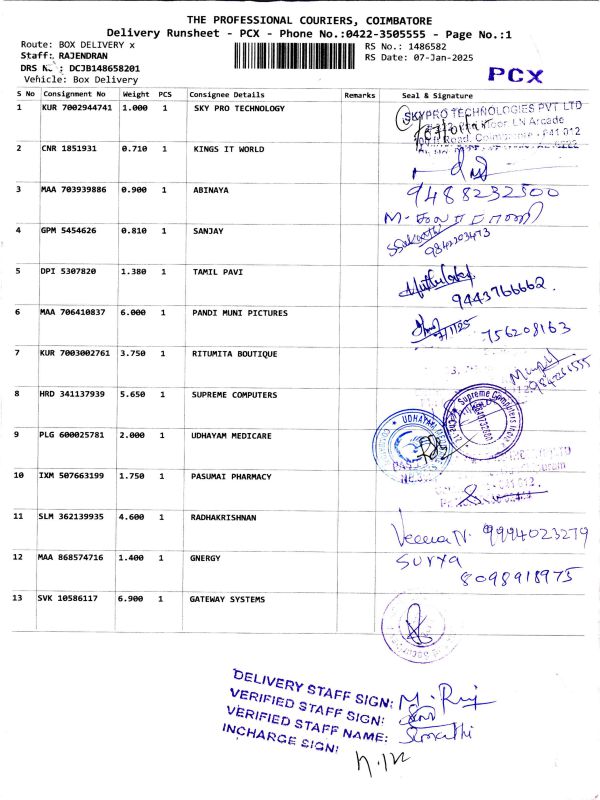 THE PROFESSIONAL COURIERS, COIMBATORE
Delivery Runsheet - PCX - Phone No.:0422-3505555 - Page No.:1
Route: BOX DELIVERY x
RS No.: 1486582
Staff: RAJENDRAN
RS Date: 07-Jan-2025
DRS No.: DCJB148658201
Vehicle: Box Delivery
PCX
S No Consignment No Weight PCS Consignee Details Remarks Seal & Signature
1 KUR 7002944741 1.000 1 SKY PRO TECHNOLOGY
SKYPRO TECHNOLOGIES PVT LTD
Floor, LN Arcade
Road, Coimbatore - 641 012
2 CNR 1851931 0.710 1 KINGS IT WORLD
3 MAA 703939886 0.900 1 ABINAYA
9488232500
4 GPM 5454626 0.810 1 SANJAY
9842203473
5 DPI 5307820 1.380 1 TAMIL PAVI
9443766662.
6 MAA 706410837 6.000 1 PANDI MUNI PICTURES
7/1/25 756208163
7 KUR 7003002761 3.750 1 RITUMITA BOUTIQUE
8 HRD 341137939 5.650 1 SUPREME COMPUTERS
Supreme Computers
9 PLG 600025781 2.000 1 UDHAYAM MEDICARE
UDHAYAM
10 IXM 507663199 1.750 1 PASUMAI PHARMACY
11 SLM 362139935 4.600 1 RADHAKRISHNAN
Veena N. 9994023279
12 MAA 868574716 1.400 1 GNERGY
SURYA
8098918975
13 SVK 10586117 6.900 1 GATEWAY SYSTEMS
DELIVERY STAFF SIGN: M. Raj
VERIFIED STAFF SIGN:
VERIFIED STAFF NAME:
INCHARGE SIGN: